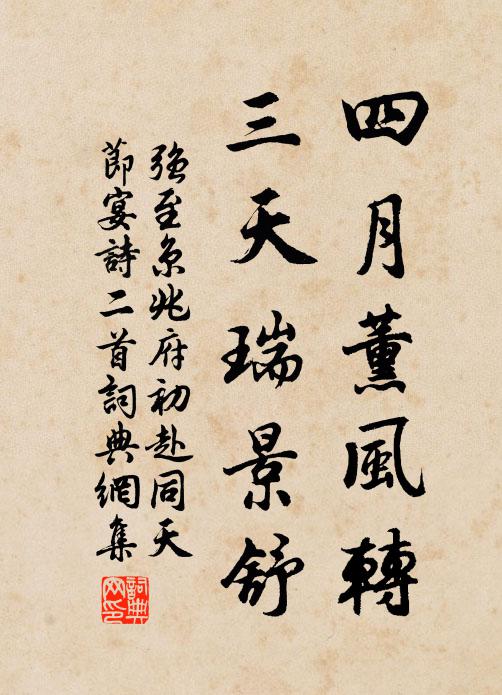 四月薰風轉
三天瑞景舒
強至京兆府初赴同天
節宴詩二首詞典網集
詞典
网印